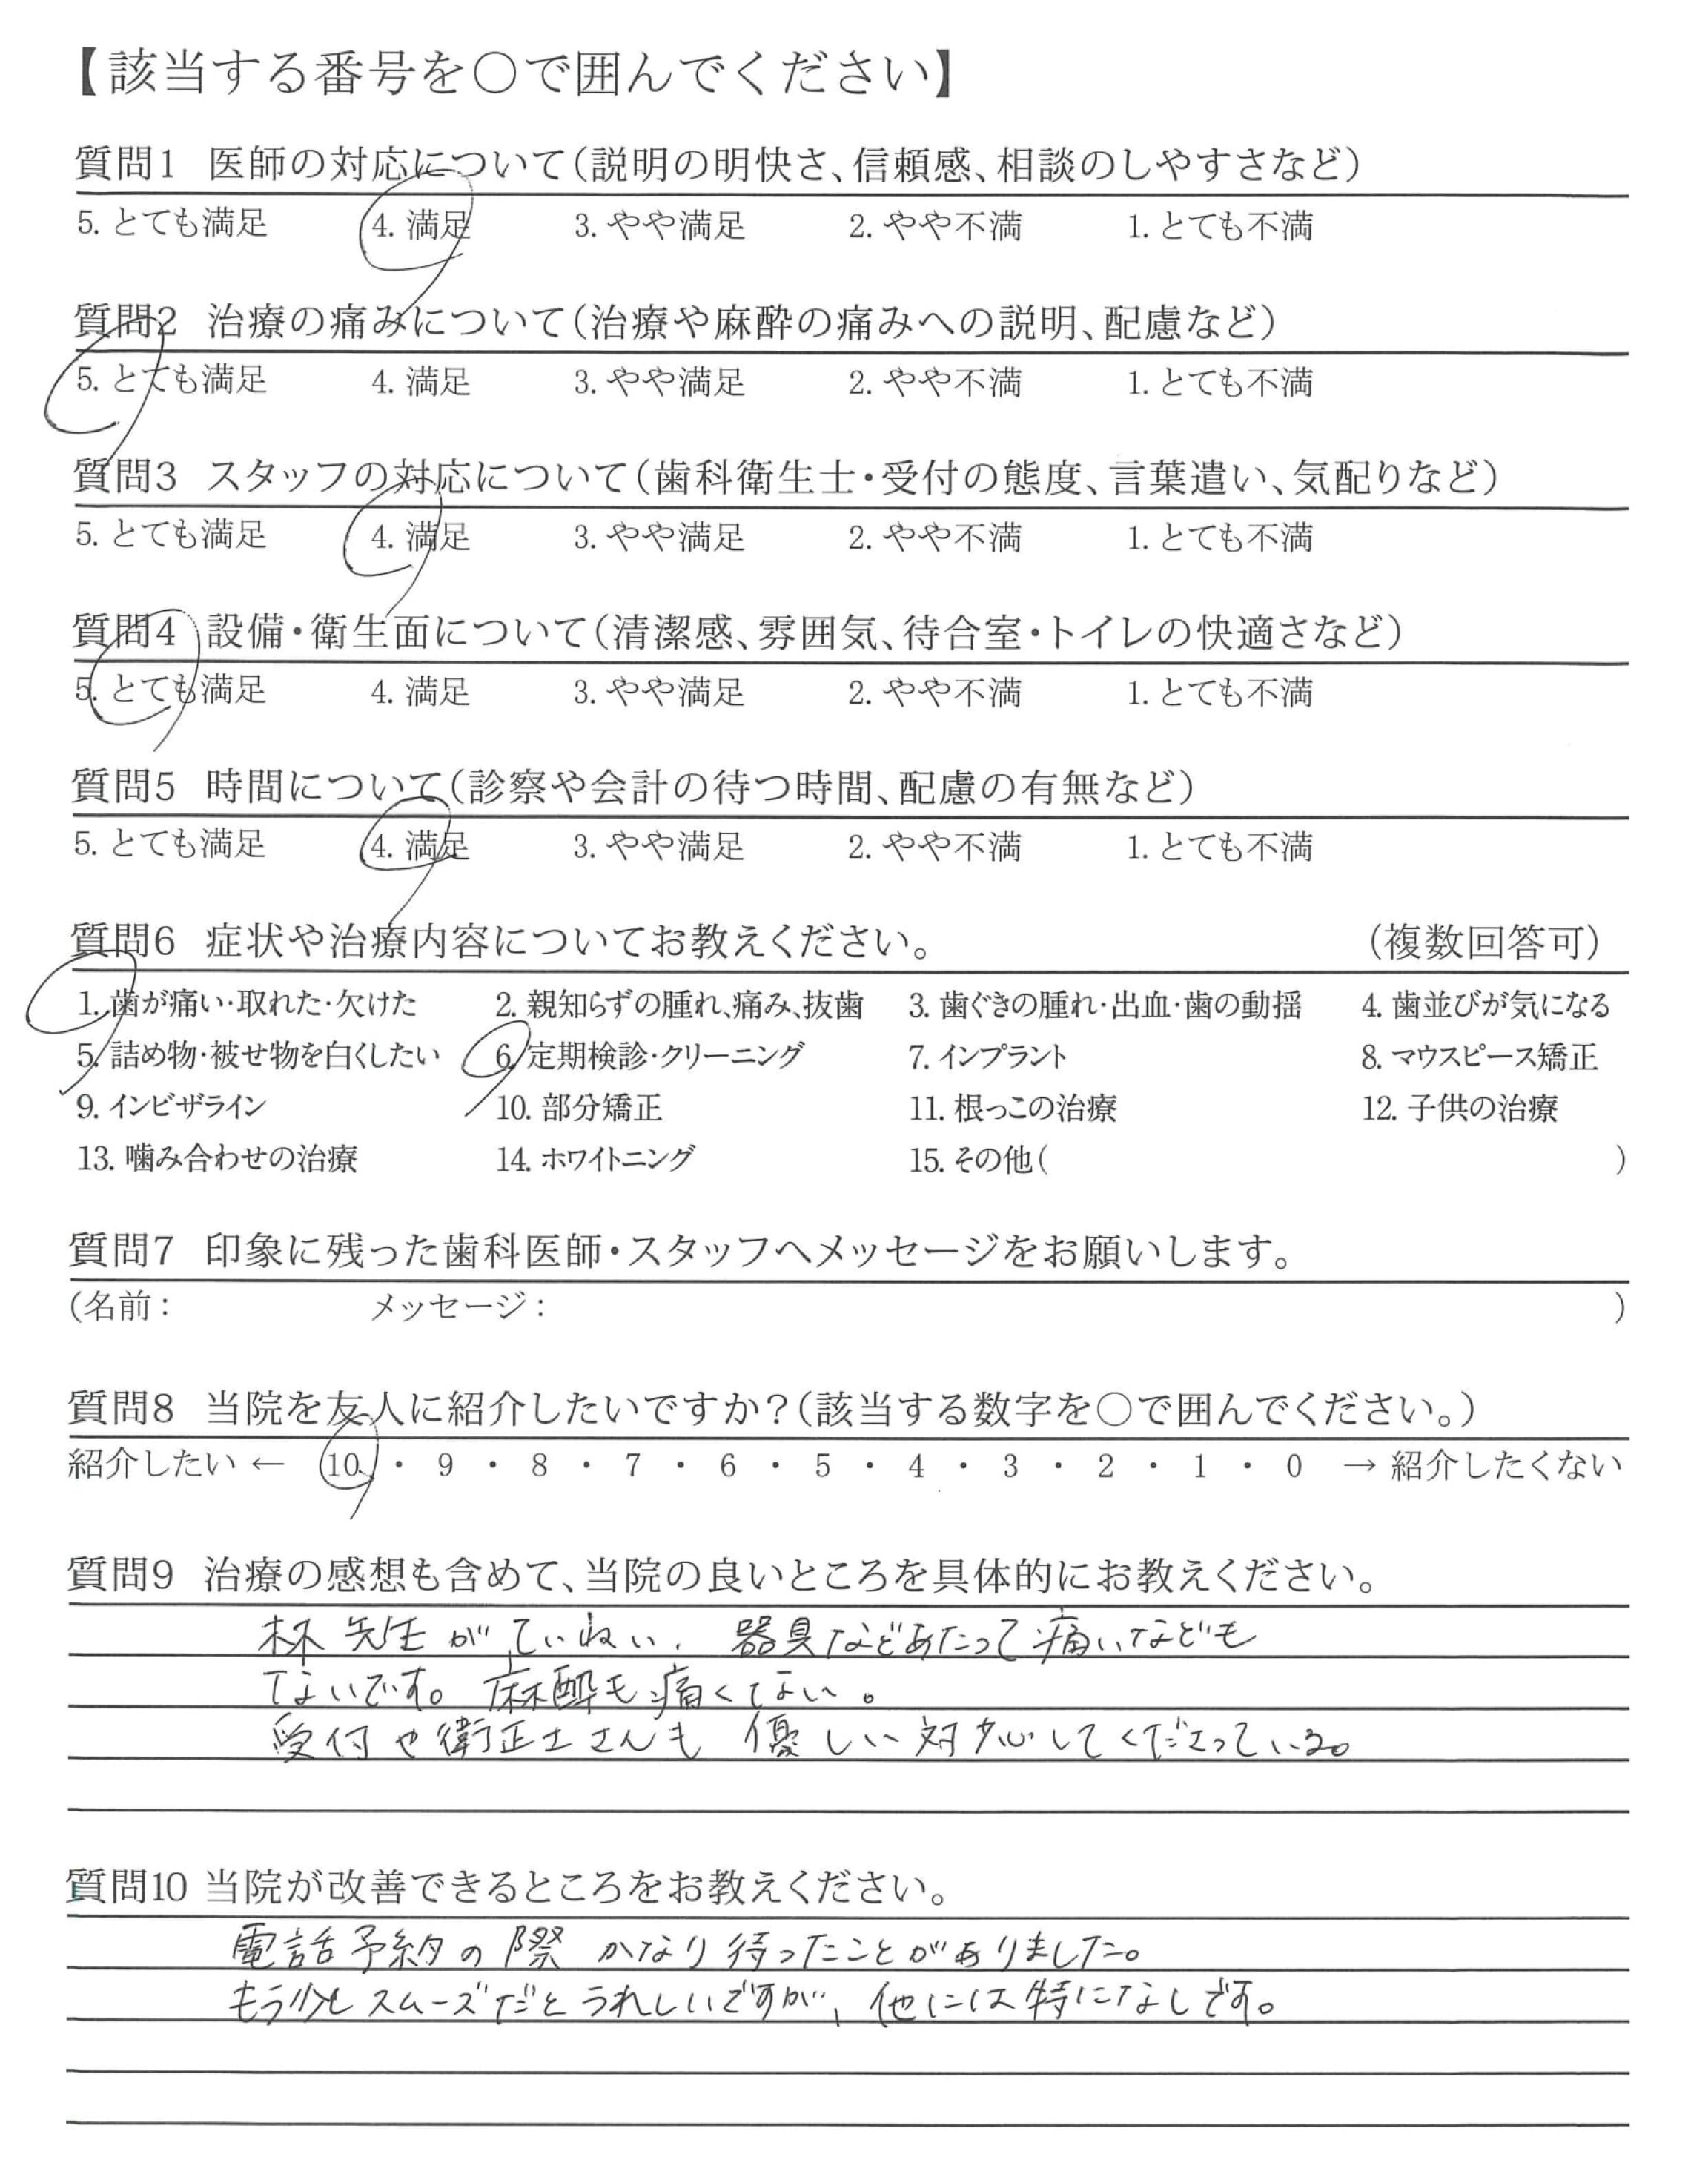 【該当する番号を〇で囲んでください】
質問1 医師の対応について(説明の明快さ、信頼感、相談のしやすさなど)
5. とても満足 4. 満足 3. やや満足 2. やや不満 1. とても不満
質問2 治療の痛みについて(治療や麻酔の痛みへの説明、配慮など)
5. とても満足 4. 満足 3. やや満足 2. やや不満 1. とても不満
質問3 スタッフの対応について(歯科衛生士・受付の態度、言葉遣い、気配りなど)
5. とても満足 4. 満足 3. やや満足 2. やや不満 1. とても不満
質問4 設備・衛生面について(清潔感、雰囲気、待合室・トイレの快適さなど)
5. とても満足 4. 満足 3. やや満足 2. やや不満 1. とても不満
質問5 時間について(診察や会計の待つ時間、配慮の有無など)
5. とても満足 4. 満足 3. やや満足 2. やや不満 1. とても不満
質問6 症状や治療内容についてお教えください。 (複数回答可)
1. 歯が痛い・取れた・欠けた 2. 親知らずの腫れ、痛み、抜歯 3. 歯ぐきの腫れ・出血・歯の動揺 4. 歯並びが気になる
5. 詰め物・被せ物を白くしたい 6. 定期検診・クリーニング 7. インプラント 8. マウスピース矯正
9. インビザライン 10. 部分矯正 11. 根っこの治療 12. 子供の治療
13. 噛み合わせの治療 14. ホワイトニング 15. その他( )
質問7 印象に残った歯科医師・スタッフへメッセージをお願いします。
(名前: メッセージ: )
質問8 当院を友人に紹介したいですか?(該当する数字を〇で囲んでください。)
紹介したい ← 10 ・ 9 ・ 8 ・ 7 ・ 6 ・ 5 ・ 4 ・ 3 ・ 2 ・ 1 ・ 0 → 紹介したくない
質問9 治療の感想も含めて、当院の良いところを具体的にお教えください。
林先生がていねい、器具などあたって痛いなども
ないです。麻酔も痛くない。
受付や衛正士さんも優しい対応してくださっている。
質問10 当院が改善できるところをお教えください。
電話予約の際かなり待ったことがありました。
もう少しスムーズだとうれしいですが、他には特になしです。